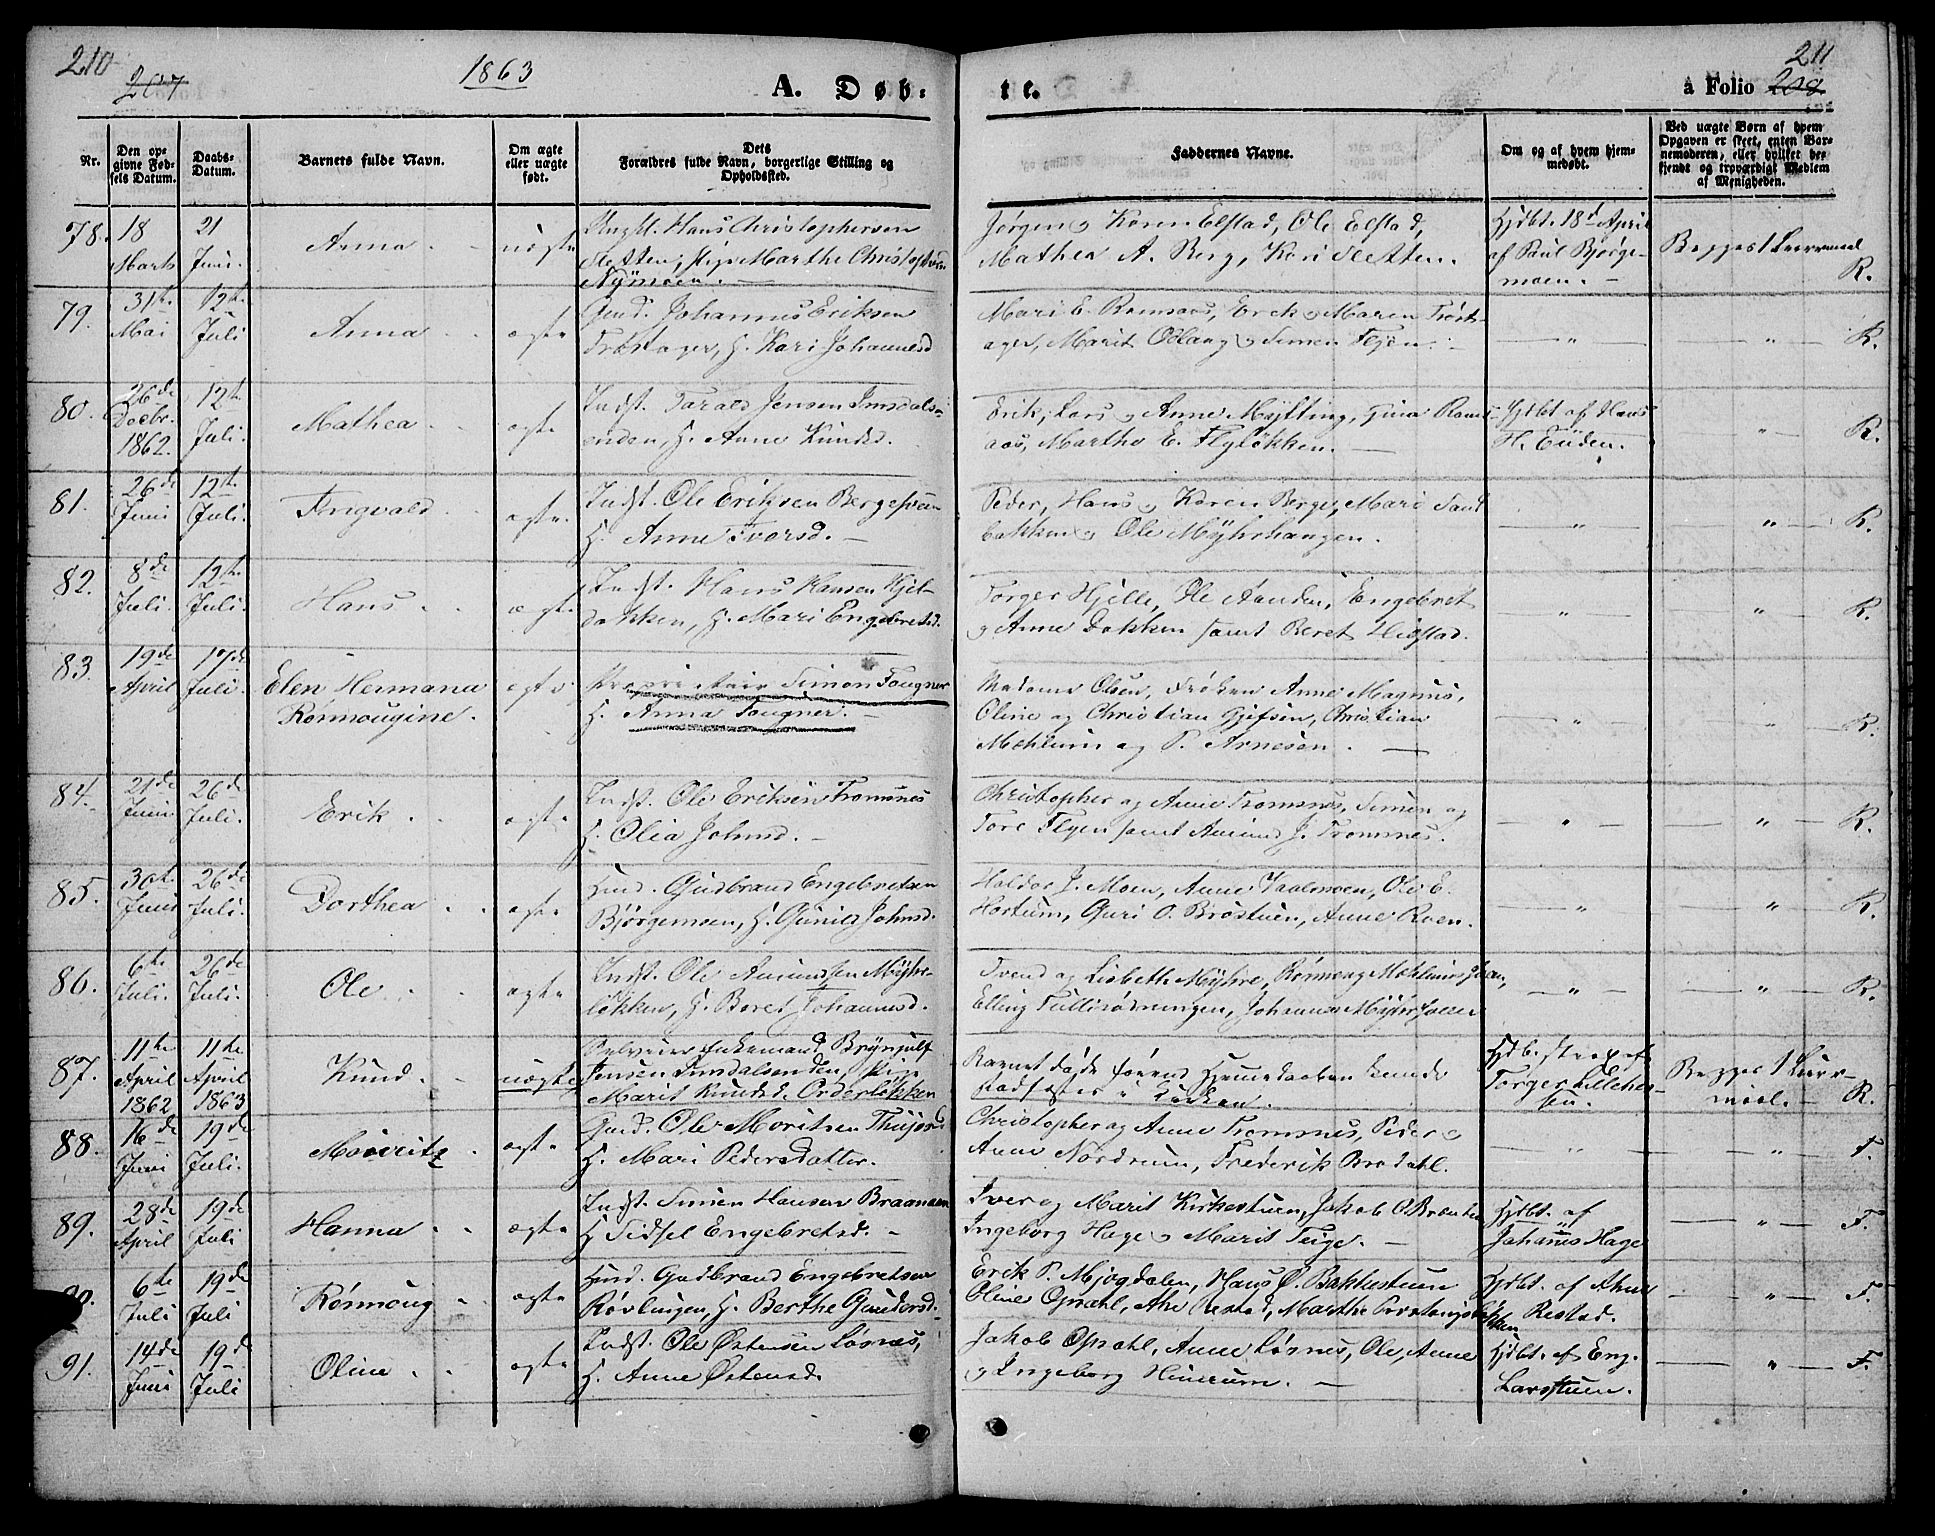 210
207
1863
A. Døb-
te.
211
à Folio 208
Nr.
Den op-
givne Fød-
sels Datum.
Daabs-
Datum.
Barnets fulde Navn.
Om ægte
eller uægte
født.
Dets
Forældres fulde Navn, borgerlige Stilling og
Opholdssted.
Faddernes Navne.
Om og af hvem hjem-
medøbt.
Ved uægte Børn af hvem
Opgaven er skeet, enten Bar-
nemoderen, eller hvilket be-
kjendt og troværdigt Medlem
af Menigheden.
78. 18 Marts
21 Juni.
Anna
uægte
Ungk. Hans Christophersen
Sletten, Pige Marthe Christophersd
Nÿmoen.
Jørgen og Karen Elstad, Ole Elstad,
Mathea A. Berg, Kari Sletten.
Hjdbt. 18d April
af Paul Bjørge-
moen.
Begges 1 Leiermaal
R.
79. 31te Mai
12te Juli
Anna
ægte
Gmd. Johannes Eriksen
Trøstager, H. Kari Johannesd
Mari E. Romsaas, Erik og Maren Trøst-
ager, Marit Odlaug og Simen Flyen.
" " R.
80. 26de Decbr. 1862.
12te Juli.
Mathea
ægte
Indst. Tarald Jensen Imsdals-
enden, H. Anne Knudsd.
Erik, Lars og Anne Mÿtting, Gina Roms-
aas, Marthe E. Flyløkken.
Hjdbt af Hans
H. Enden.
" R.
81. 26de Juni
12te Juli.
Ingvald
ægte.
Indst. Ole Eriksen Bergesveen
H. Anne Iversd.
Peder, Hans og Karen Berge, Mari Sand
bakken og Ole Mÿhrhaugen.
" " R.
82. 8de Juli.
12te Juli.
Hans
ægte
Indst. Hans Hansen Hjel-
dokken, H. Mari Engebretsd.
Torger Hjelle, Ole Aanden, Engebret
og Anne Dokken samt Beret Hiestad.
" " R.
83 19de April
17de Juli.
Elen Hermana
Rønnougine.
ægte
Proprietair Simon Fougner
H. Anna Fougner.
Madame Olsen, Frøken Anne Magnus,
Oline og Christian Gjefsen, Christian
Mæhlum og P. Arnesen.
" " R.
84. 21de Juni
26de Juli.
Erik
ægte
Indst. Ole Eriksen Tromsnes
H. Olia Johnsd.
Christopher og Anne Tromsnes, Simen og
Tore Flyen samt Amund J. Tromsnes.
" " R.
85. 30te Juni
26de Juli.
Dorthea
ægte
Hmd. Gudbrand Engebretsen
Bjørgemoen, H. Gunild Johnsd.
Haldor J. Moen, Anne Vaalmoen, Ole E.
Hostum, Guri O. Brøstuen, Anne Roen.
" " R.
86. 6te Juli.
26de Juli.
Ole
ægte
Indst. Ole Amundsen Mÿhre-
løkken, H. Beret Johannesd.
Svend og Lisbeth Mÿhre, Rønnoug
Elling
" " R.
87. 11te April 1862
11te April 1863
Knud
uægte
Enkemand Brÿnjulf
Jensen Imsdalsenden, Pige
Marit Knudsd. Oderløkken
Barnet døde førend Hjemmedaaben kunde
stadfæstes i Kirken.
Hjdb. strax af
Torger Lillehve-
en.
Begges 1 Leier-
maal.
R.
88. 16de Juni
19de Juli.
Mouritz
ægte
Gmd. Ole Moritsen
H. Mari Pedersdatter.
Christopher og Anne Tromsnes, Peder og
Anne Nordrum, Frederik Brodahl.
" " F.
89. 28de April
19de Juli
Hanna
ægte
Indst. Simen Hansen Braanaen
H Sidsel Engebretsd.
Iver og Marit Kirkestuen, Jakob O. Braaten
Ingeborg Hage og Marit Teige.
Hjdbt. af
Johannes Hage
" F.
90. 6te Juli
19de Juli
Rønnoug
ægte
Hmd. Gudbrand Engebretsen
Røvlingen, H. Berthe Gundersd.
Erik P. Mjogdalen, Hans O. Bakkestuen
Oline Opsahl, Ane Restad, Marthe
Hjdbt. af Ane
Restad.
" F.
91. 14de Juni
19de Juli
Oline
ægte
Indst. Ole Østensen Løsnes,
H. Anne Østensd.
Jakob Opsahl, Anne Løsnes, Ole, Anne
og Ingeborg Himrum.
Hjdbt. af Eng.
Larsstuen.
" F.